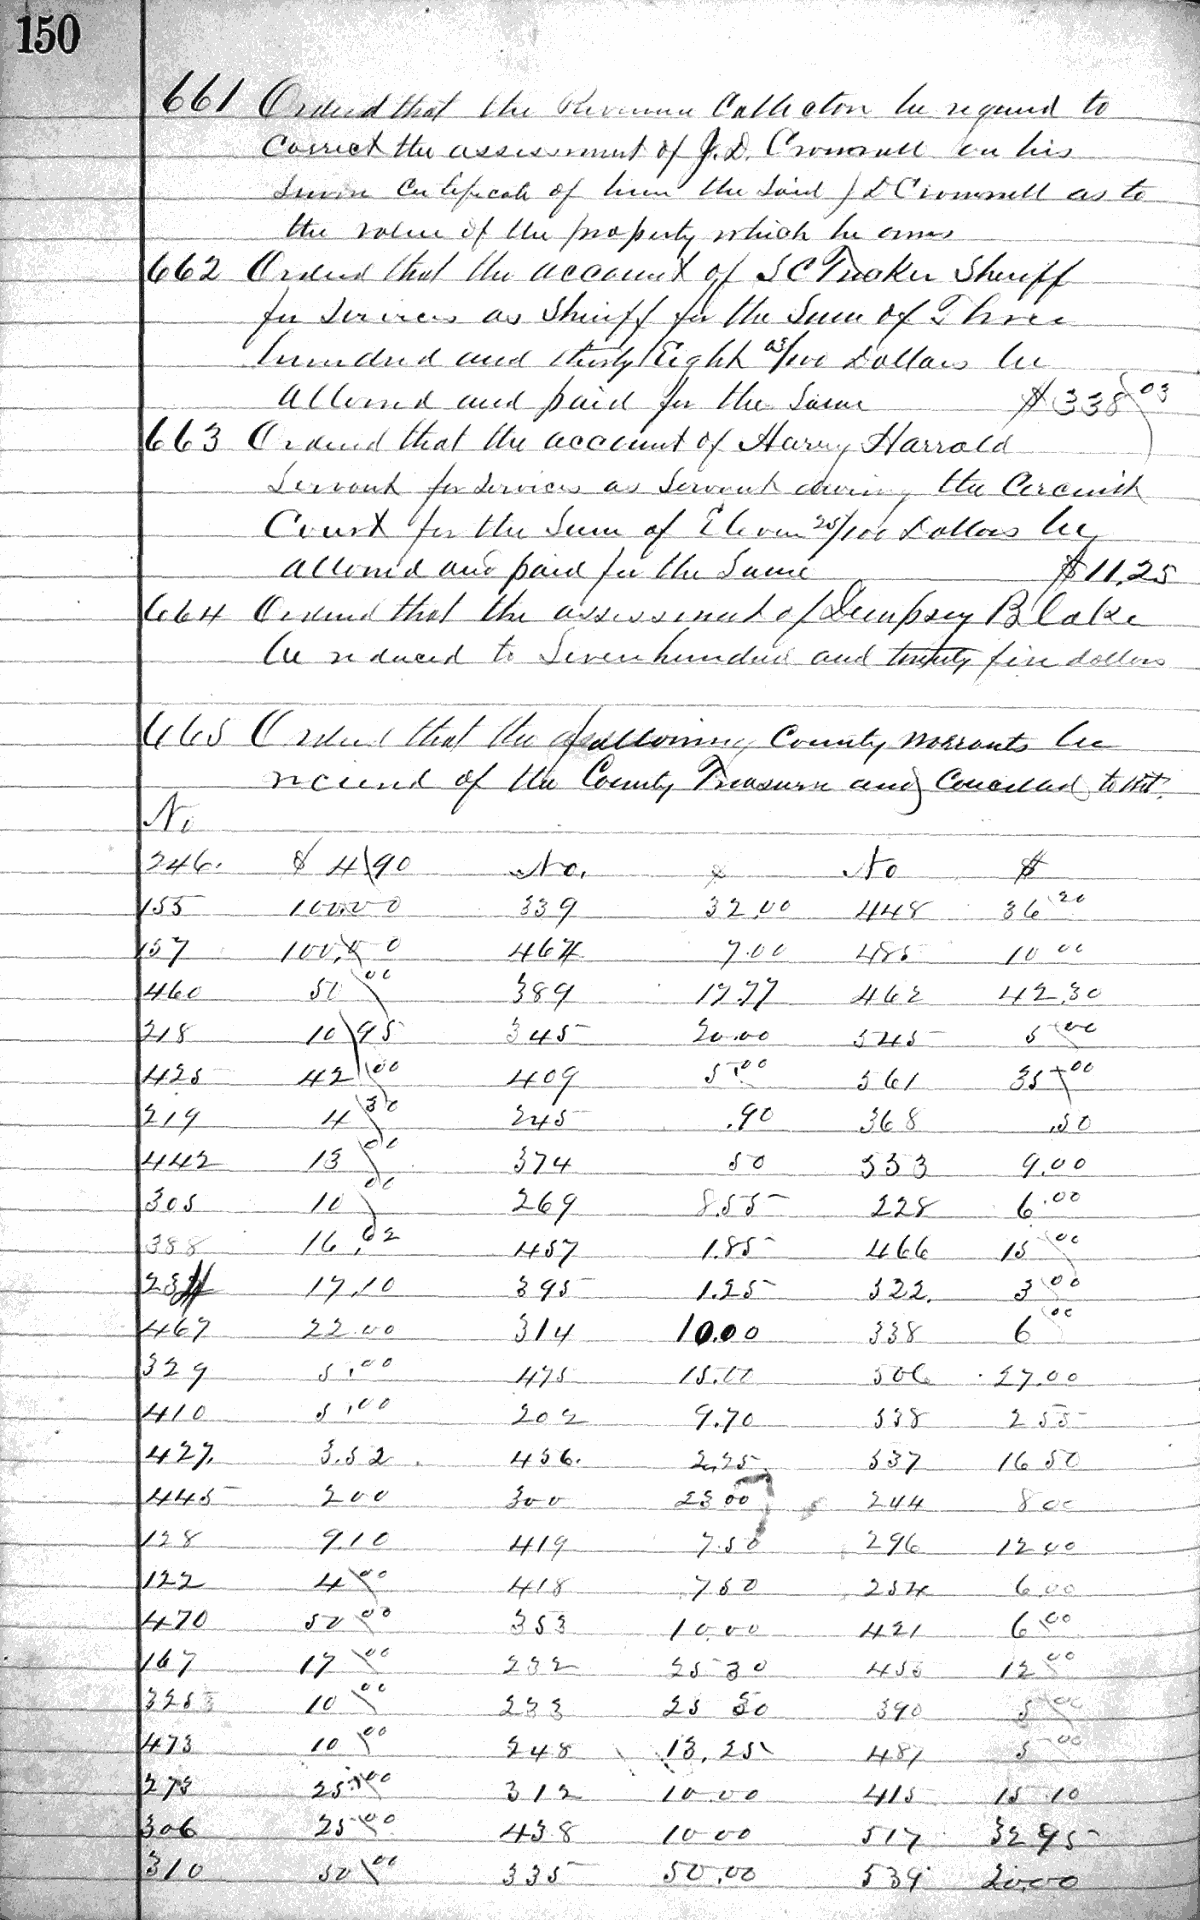 150
661 Ordered that the Revenue Collector be required to
correct the assessment of J. D. Cromwell on his
sworn Certificate of him the said J D Cromwell as to
the value of the property which he owns
662 Ordered that the account of S C Tucker Sheriff
for Services as Sheriff for the Sum of Three
hundred and thirty Eight 03/100 Dollars be
allowed and paid for the Same $338 03
663 Ordered that the account of Harry Harrald
Servant for services as Servant during the Circuit
Court for the Sum of Eleven 25/100 Dollars be
allowed and paid for the Same $11.25
664 Ordered that the assessment of Dempsey Blake
be reduced to Seven hundred and twenty five dollars
665 Ordered that the following County Warrants be
received of the County Treasurer and Cancelled towit.
No
246. $ 4 90 No. $ No $
155 100.00 339 32.00 448 36 20
157 100.00 464 7.00 485 10 00
460 50 00 389 17.77 462 42.30
218 10 95 345 20.00 545 5 00
425 42 00 409 5.00 561 35 00
219 4 30 245 .90 368 .50
442 13 00 374 50 533 9.00
305 10 00 269 8.55 228 6.00
388 16.02 457 1.85 466 15 00
234 17.10 395 1.25 322. 3 00
467 22.00 314 10.00 338 6 00
329 5.00 475 15.00 506 27.00
410 5.00 202 9.70 538 2 55
427. 3.52 456. 2.25 537 16 50
445 2 00 300 23 00 244 8 00
128 9.10 419 7.50 296 12 00
122 4 00 418 7 50 254 6 00
470 50 00 353 10.00 421 6 00
167 17 00 232 25 30 455 12 00
325 10 00 233 25 50 390 5 00
473 10 00 248 13.25 481 5 00
273 25.00 312 10.00 415 15 10
306 25 00 438 10 00 517 32 95
310 50 00 335 50.00 539 20.00